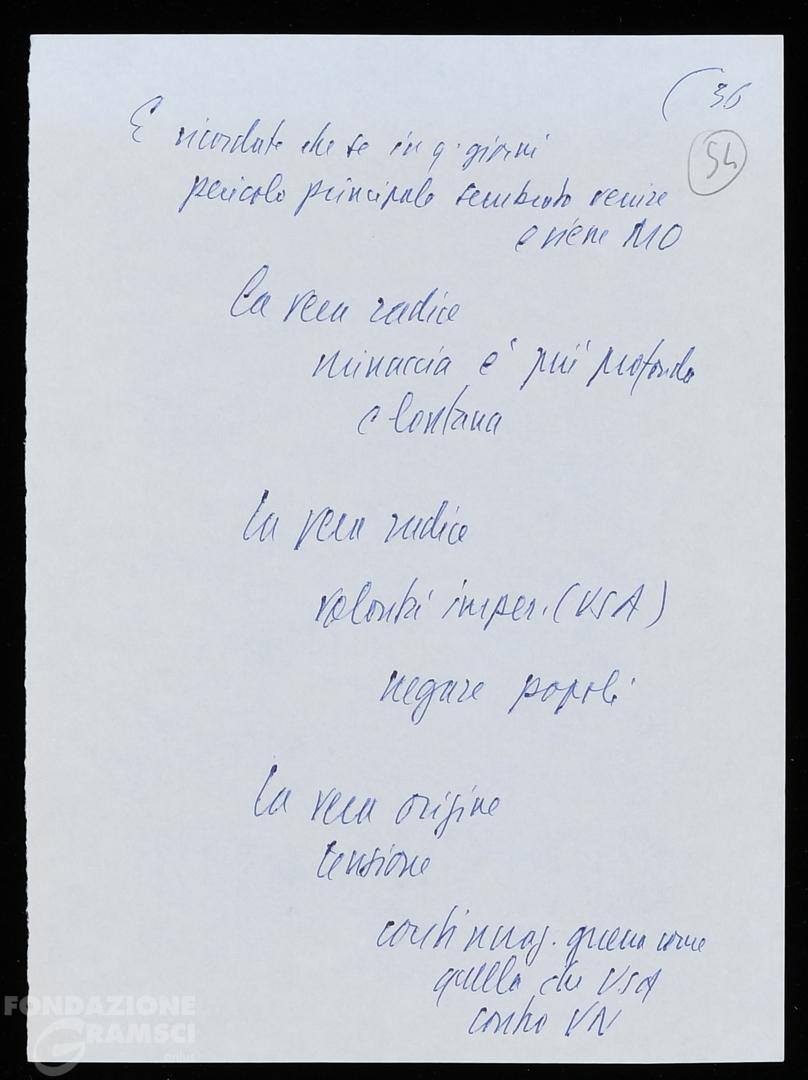 (36
54
E ricordate che se in q. giorni
pericolo principale sembrato venire
e viene MO
La vera radice
minaccia è più profonda
e lontana
La vera radice
volontà imper. (USA)
negare popoli
La vera origine
tensione
continuaz. guerra come
quella che USA
contro VN
FONDAZIONE
GRAMSCI
onlus